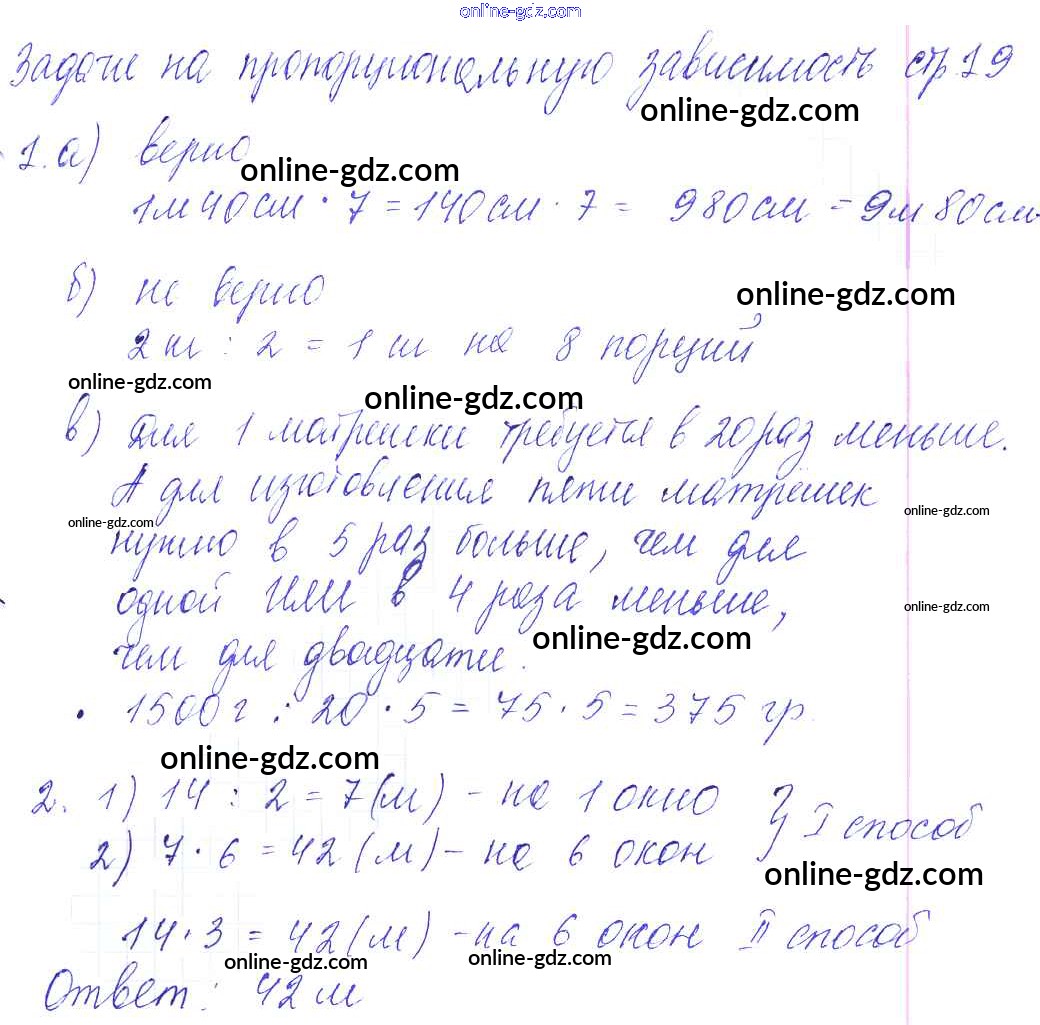 online-gdz.com
Задачи на пропорциональную зависимость стр. 19
online-gdz.com
1. а) верно
online-gdz.com
1м 40см · 7 = 140см · 7 = 980см = 9м 80см
б) не верно
online-gdz.com
2 кг : 2 = 1 кг на 8 порций
online-gdz.com
online-gdz.com
в) Для 1 матрешки требуется в 20 раз меньше.
А для изготовления пяти матрёшек
online-gdz.com
online-gdz.com
нужно в 5 раз больше, чем для
одной или в 4 раза меньше,
online-gdz.com
online-gdz.com
чем для двадцати.
1500г : 20 · 5 = 75 · 5 = 375 гр.
online-gdz.com
2. 1) 14 : 2 = 7 (м) - на 1 окно
I способ
2) 7 · 6 = 42 (м) - на 6 окон
online-gdz.com
14 · 3 = 42 (м) - на 6 окон II способ
online-gdz.com
online-gdz.com
Ответ: 42 м